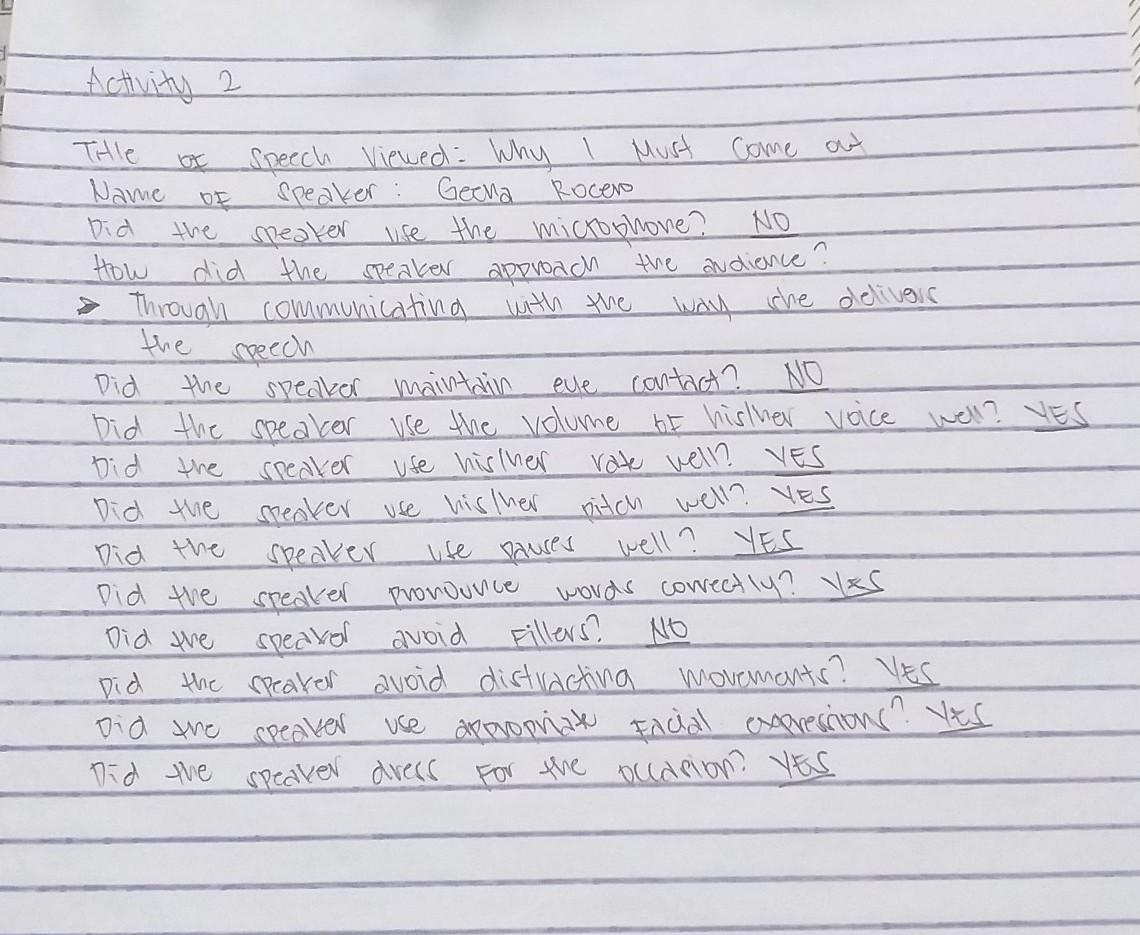 Activity 2
Title of Speech Viewed: Why I Must Come out
Name of Speaker: Geena Rocero
Did the speaker use the microphone? NO
How did the speaker approach the audience?
➢ Through communicating with the way she delivers
the speech
Did the speaker maintain eye contact? NO
Did the speaker use the volume of his/her voice well? YES
Did the speaker use his/her rate well? YES
Did the speaker use his/her pitch well? YES
Did the speaker use pauses well? YES
Did the speaker pronounce words correctly? YES
Did the speaker avoid Fillers? NO
Did the speaker avoid distracting movements? YES
Did the speaker use appropriate Facial expressions? YES
Did the speaker dress For the occasion? YES